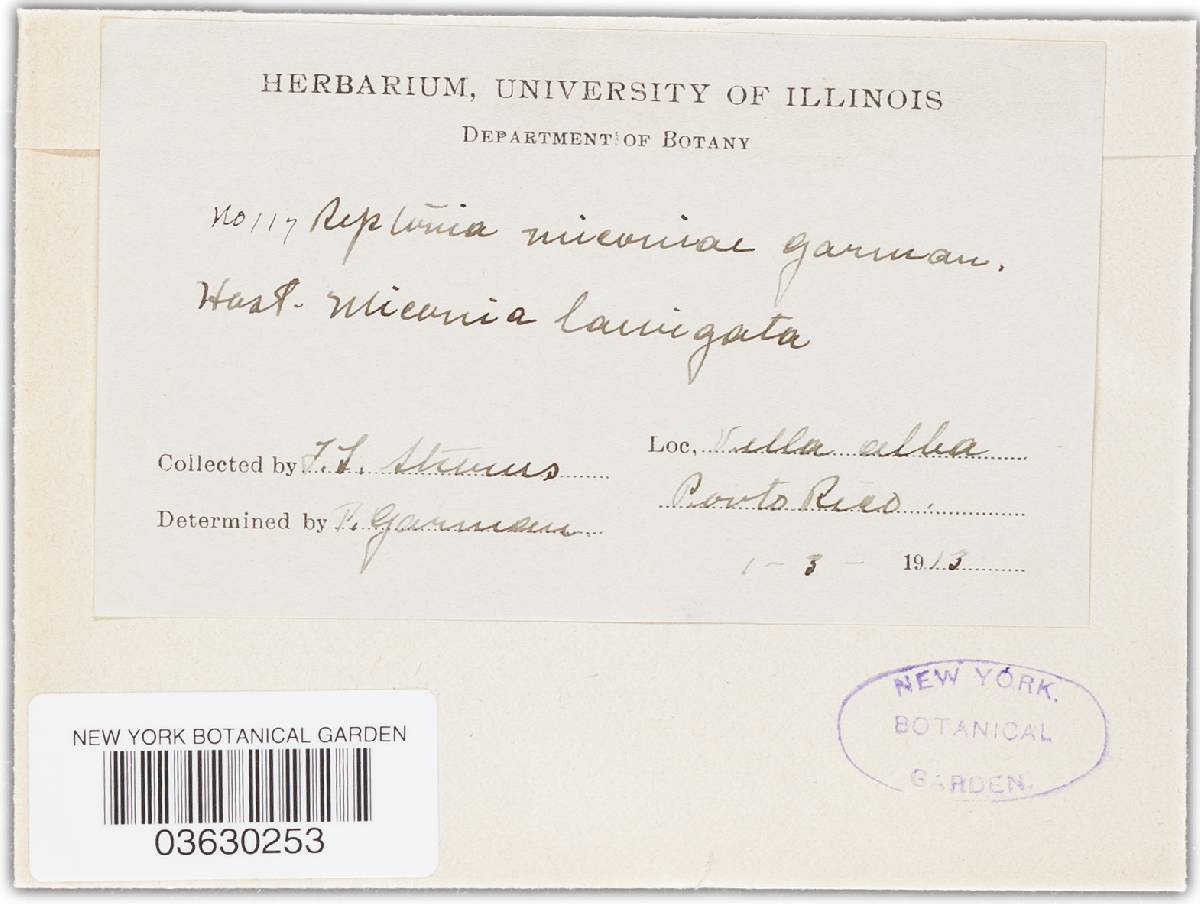 HERBARIUM, UNIVERSITY OF ILLINOIS
DEPARTMENT OF BOTANY
No 117 Septoria miconiae Garman.
Host - Miconia laevigata
Collected by F. L. Stevens
Determined by P. Garman.
Loc, Villa alba
Porto Rico.
1 - 3 - 1913
NEW YORK BOTANICAL GARDEN
03630253
NEW YORK.
BOTANICAL
GARDEN.